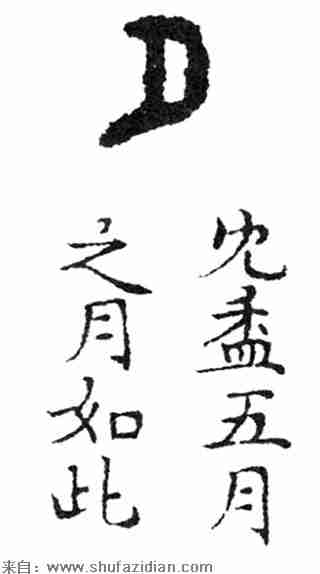 月
免盉五月
之月如此
来自：www.shufazidian.com